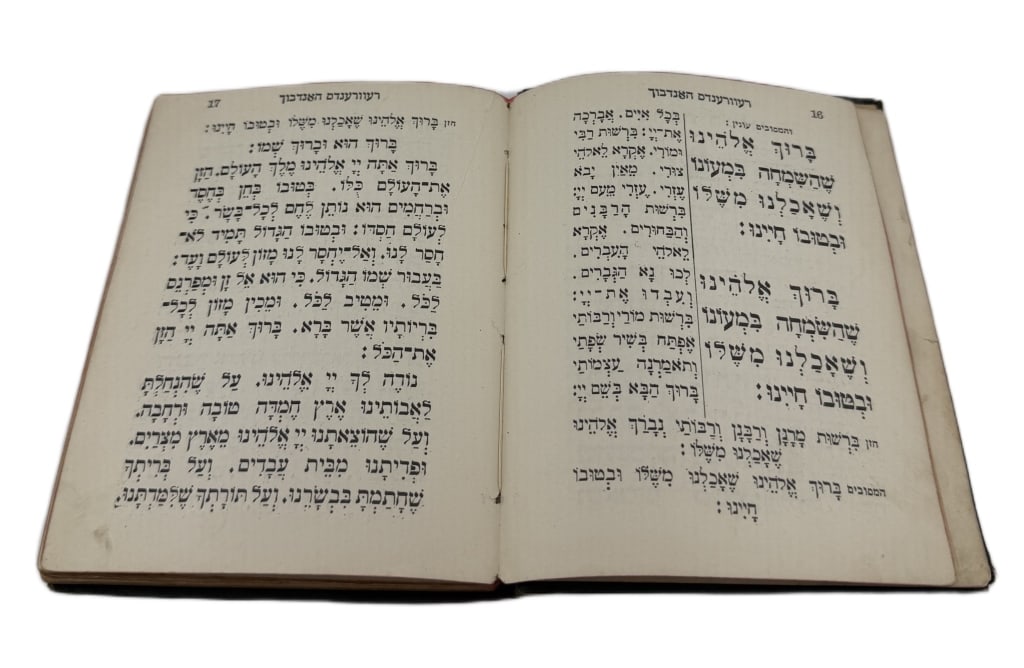 16
רעווערענדס האַנדבוך
והמסובים עונין:
בָּרוּךְ אֱלֹהֵינוּ
שֶׁהַשִּׂמְחָה בִּמְעוֹנוֹ
וְשֶׁאָכַלְנוּ מִשֶּׁלּוֹ
וּבְטוּבוֹ חָיִינוּ:
בָּרוּךְ אֱלֹהֵינוּ
שֶׁהַשִּׂמְחָה בִּמְעוֹנוֹ
וְשֶׁאָכַלְנוּ מִשֶּׁלּוֹ
וּבְטוּבוֹ חָיִינוּ:
בְּכָל אִיִּים. אֲבָרְכָה
אֶת־יְיָ: בִּרְשׁוּת רַבִּי
וּמוֹרִי. אֶקְרָא לֵאלֹהֵי
צוּרִי. מֵאַיִן יָבֹא
עֶזְרִי. עֶזְרִי מֵעִם יְיָ:
בִּרְשׁוּת הָרַבָּנִים
וְהַבַּחוּרִים. אֶקְרָא
לֵאלֹהֵי הָעִבְרִים.
לְכוּ נָא הַגְּבָרִים.
וְעִבְדוּ אֶת־יְיָ:
בִּרְשׁוּת מוֹרַי וְרַבּוֹתַי
אֶפְתַּח בְּשִׁיר שְׂפָתַי
וְתֹאמַרְנָה עַצְמוֹתַי
בָּרוּךְ הַבָּא בְּשֵׁם יְיָ:
חזן בִּרְשׁוּת מָרָנָן וְרַבָּנָן וְרַבּוֹתַי נְבָרֵךְ אֱלֹהֵינוּ
שֶׁאָכַלְנוּ מִשֶּׁלּוֹ:
המסובים בָּרוּךְ אֱלֹהֵינוּ שֶׁאָכַלְנוּ מִשֶּׁלּוֹ וּבְטוּבוֹ
חָיִינוּ:
רעווערענדס האַנדבוך
17
חזן בָּרוּךְ אֱלֹהֵינוּ שֶׁאָכַלְנוּ מִשֶּׁלּוֹ וּבְטוּבוֹ חָיִינוּ:
בָּרוּךְ הוּא וּבָרוּךְ שְׁמוֹ:
בָּרוּךְ אַתָּה יְיָ אֱלֹהֵינוּ מֶלֶךְ הָעוֹלָם. הַזָּן
אֶת־הָעוֹלָם כֻּלּוֹ. בְּטוּבוֹ בְּחֵן בְּחֶסֶד
וּבְרַחֲמִים הוּא נוֹתֵן לֶחֶם לְכָל־בָּשָׂר. כִּי
לְעוֹלָם חַסְדּוֹ: וּבְטוּבוֹ הַגָּדוֹל תָּמִיד לֹא־
חָסַר לָנוּ. וְאַל־יֶחְסַר לָנוּ מָזוֹן לְעוֹלָם וָעֶד:
בַּעֲבוּר שְׁמוֹ הַגָּדוֹל. כִּי הוּא אֵל זָן וּמְפַרְנֵס
לַכֹּל. וּמֵטִיב לַכֹּל. וּמֵכִין מָזוֹן לְכָל־
בְּרִיּוֹתָיו אֲשֶׁר בָּרָא. בָּרוּךְ אַתָּה יְיָ הַזָּן
אֶת־הַכֹּל:
נוֹדֶה לְּךָ יְיָ אֱלֹהֵינוּ. עַל שֶׁהִנְחַלְתָּ
לַאֲבוֹתֵינוּ אֶרֶץ חֶמְדָּה טוֹבָה וּרְחָבָה.
וְעַל שֶׁהוֹצֵאתָנוּ יְיָ אֱלֹהֵינוּ מֵאֶרֶץ מִצְרַיִם.
וּפְדִיתָנוּ מִבֵּית עֲבָדִים. וְעַל בְּרִיתְךָ
שֶׁחָתַמְתָּ בִּבְשָׂרֵנוּ. וְעַל תּוֹרָתְךָ שֶׁלִּמַּדְתָּנוּ.